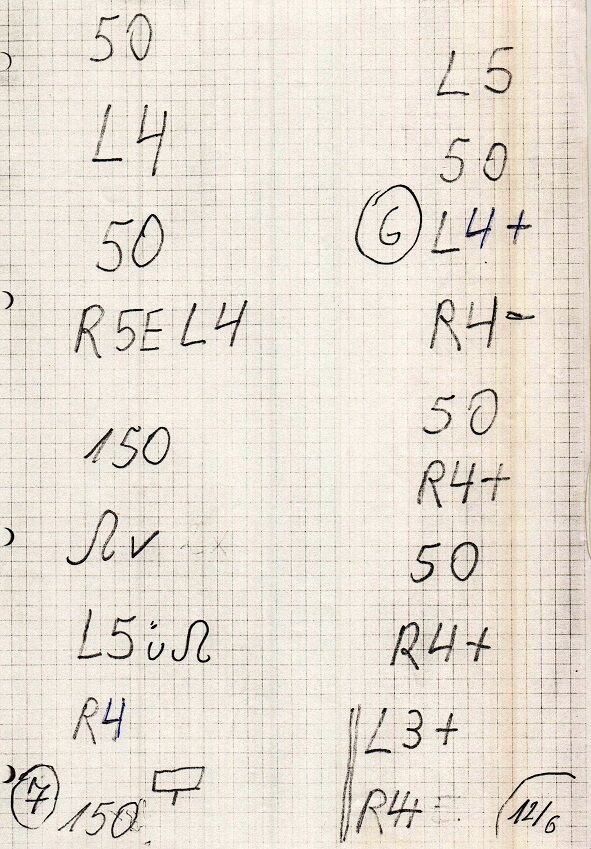 50
L4
50
R5E L4
150
Ωv
L5üΩ
R4
7
150
L5
50
6 L4+
R4-
50
R4+
50
R4+
L3+
R4+
12/6